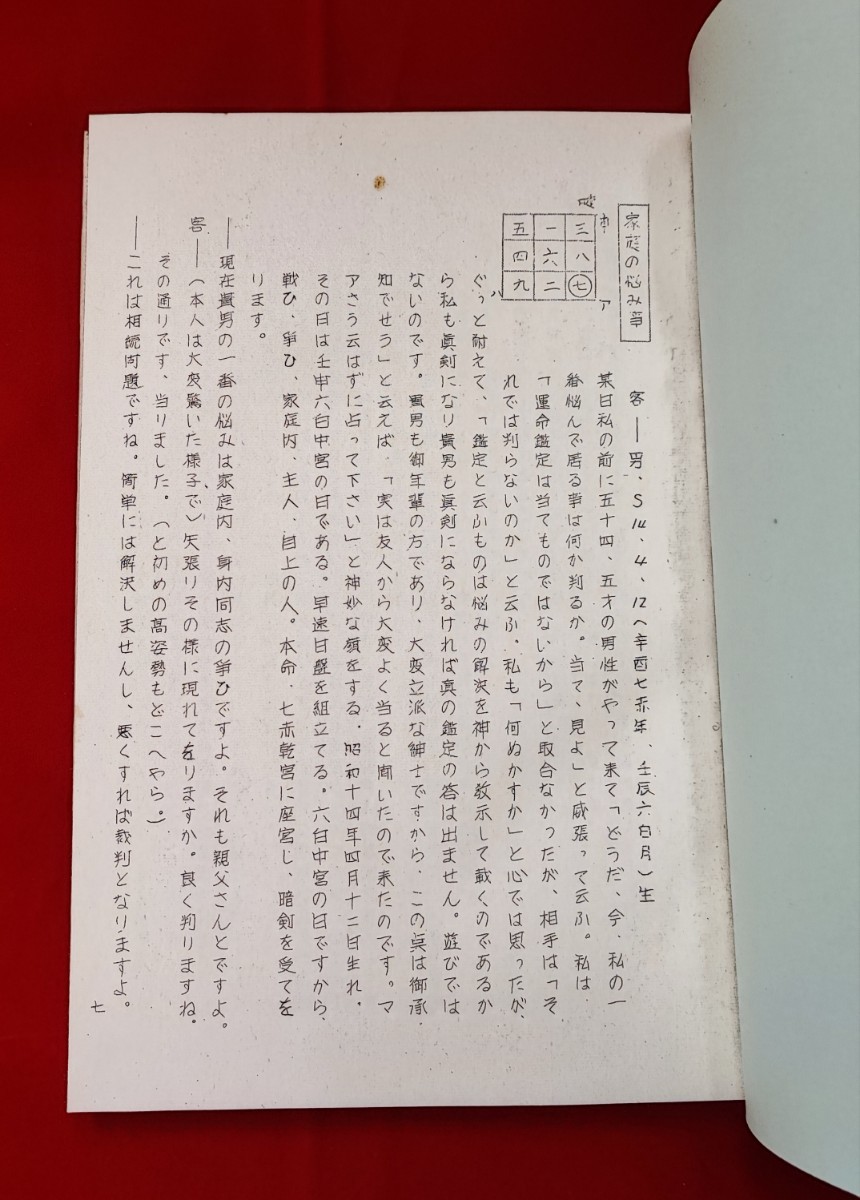 家庭の悩み事
破
ホ
ア
ハ
三 八 ㊆
一 六 二
五 四 九
客――男、S14.4.12(辛酉七赤年、壬辰六白月)生
某日私の前に五十四、五才の男性がやって来て「どうだ、今、私の一
番悩んで居る事は何か判るか。当て、見よ」と威張って云ふ。私は
「運命鑑定は当てものではないから」と取合なかったが、相手は「そ
れでは判らないのか」と云ふ。私も「何ぬかすか」と心では思ったが、
ぐっと耐えて、「鑑定と云ふものは悩みの解決を神から教示して戴くのであるか
ら私も真剣になり貴男も真剣にならなければ真の鑑定の答は出ません。遊びでは
ないのです。貴男も御年輩の方であり、大変立派な紳士ですから、この点は御承
知でせう」と云えば、「実は友人から大変よく当ると聞いたので来たのです。マ
アさう云はずに占って下さい」と神妙な顔をする、昭和十四年四月十二日生れ。
その日は壬申六白中宮の日である。早速日盤を組立てる。六白中宮の日ですから、
戦ひ、争ひ、家庭内、主人、目上の人。本命、七赤乾宮に座宮し、暗剣を受てを
ります。
――現在貴男の一番の悩みは家庭内、身内同志の争ひですよ。それも親父さんとですよ。
客――(本人は大変驚いた様子、で)矢張りその様に現れてをりますか。良く判りますね。
その通りです、当りました。(と初めの高姿勢もどこへやら。)
――これは相続問題ですね。簡単には解決しませんし、悪くすれば裁判となりますよ。
七